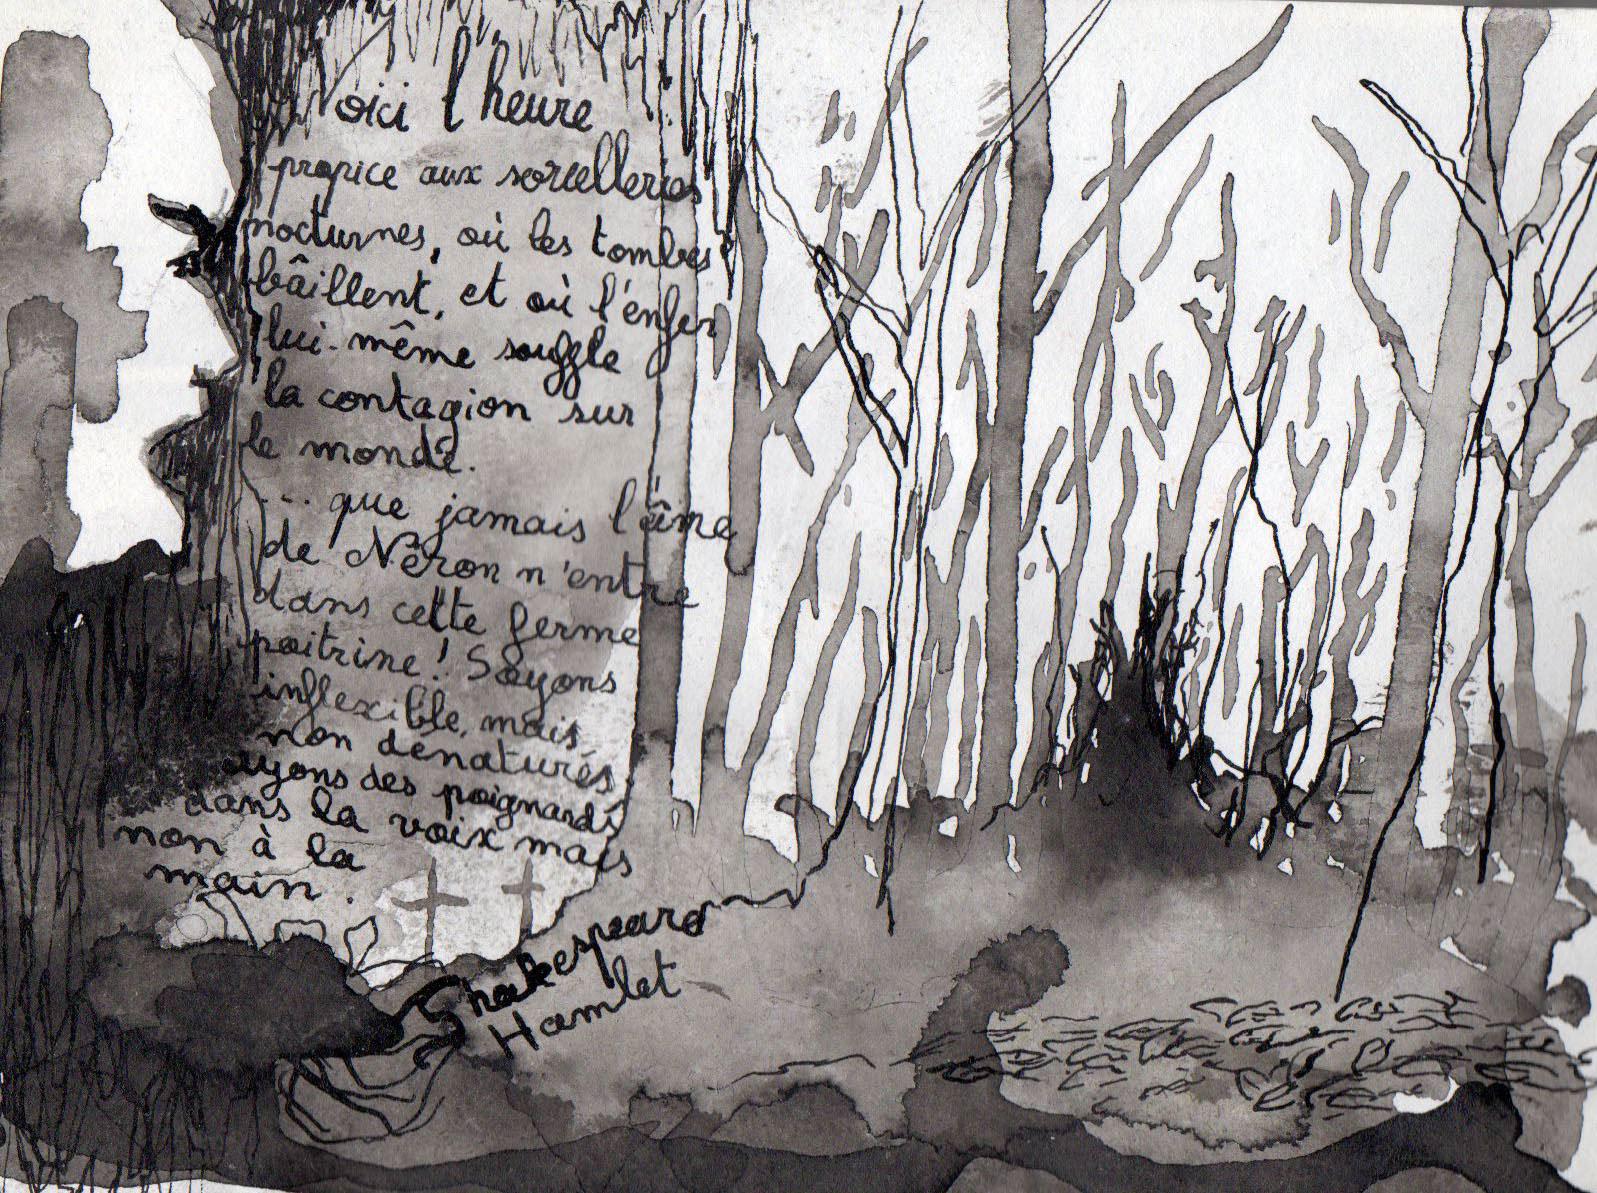 Voici l'heure
propice aux sorcelleries
nocturnes, où les tombes
bâillent, et où l'enfer
lui-même souffle
la contagion sur
le monde.
... que jamais l'âme
de Néron n'entre
dans cette ferme
poitrine! Soyons
inflexible, mais
non dénaturés
ayons des poignards
dans la voix mais
non à la
main.
Shakespeare
Hamlet